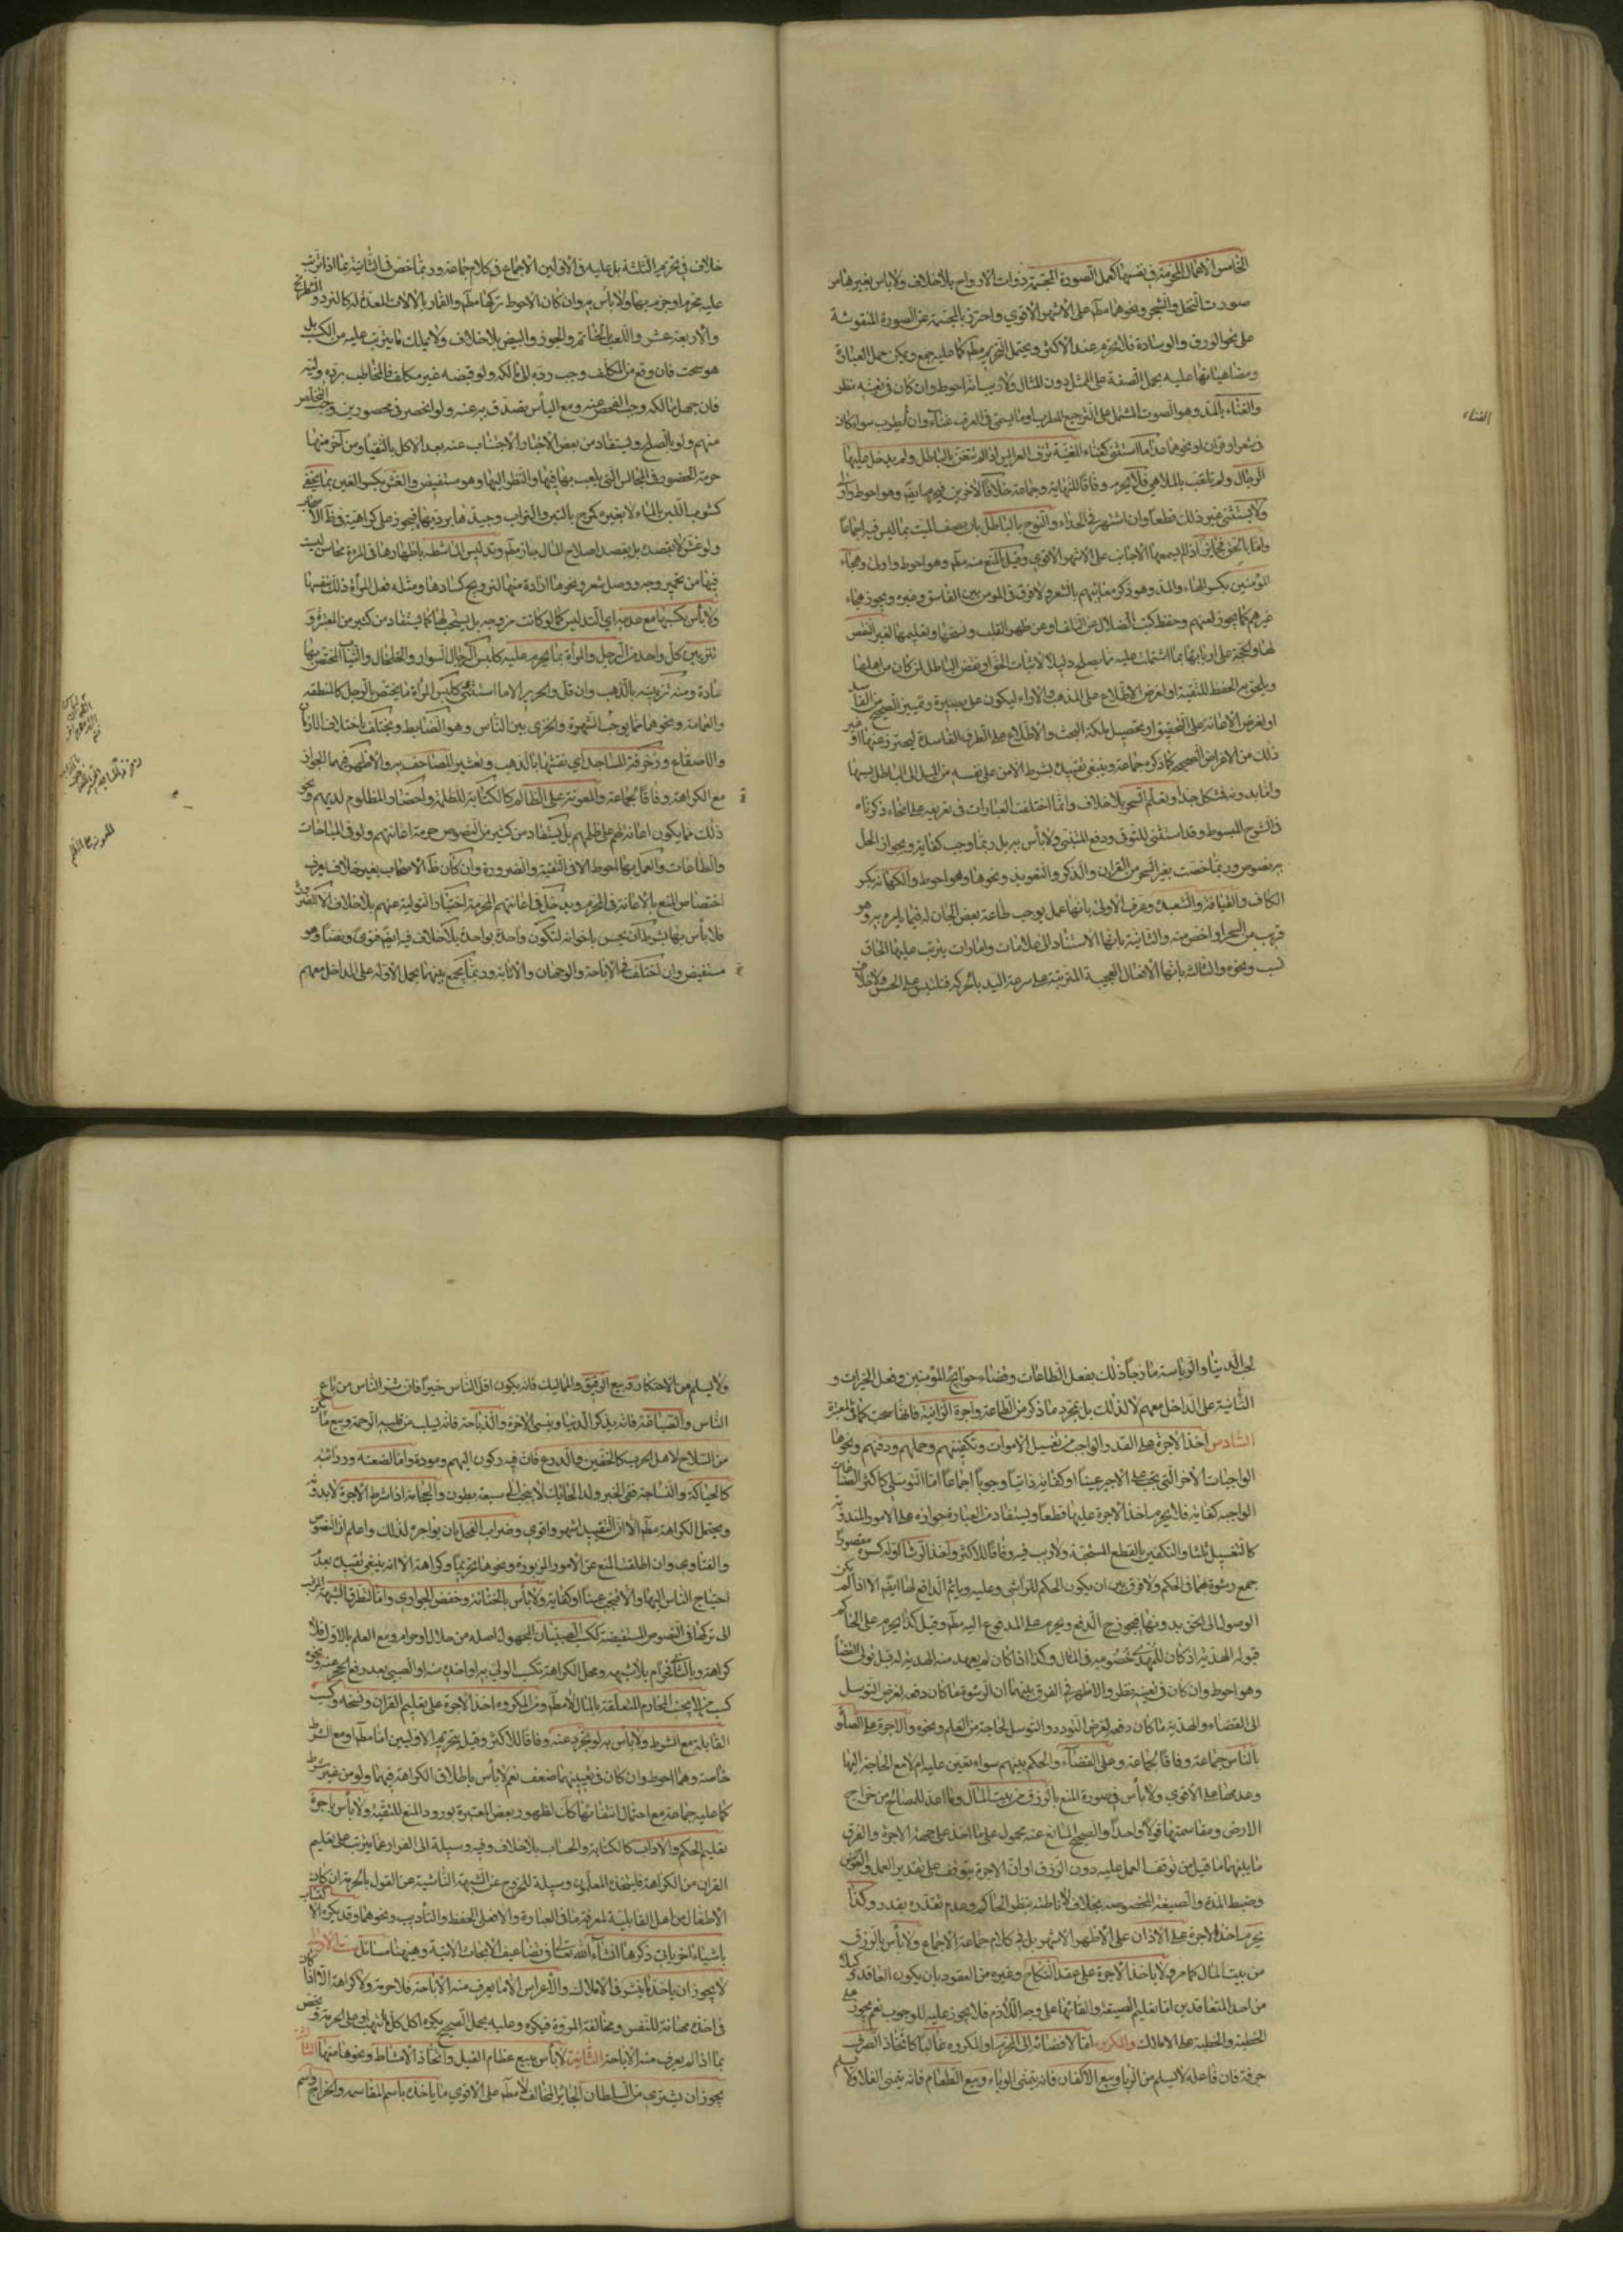 الخامس الاعمال المحرمة في نفسها كعمل الصورة المجسمة ذوات الارواح بلا خلاف ولا باس بغيرها من
صورت النخل والشجر ونحوهما مطم على الاشهر الاقوى واحترز بالمجسمة عن الصورة المنقوشة
على نحو الورق والوسادة فلا يحرم عند الاكثر ويحتمل التحريم مطم كما عليه جمع ويمكن حمل العبارة
ومضاهياتها عليه بحمل الصفة على المثل دون المثال ولا ريب انه احوط وان كان في تعينه نظر
والغناء بالمد وهو الصوت المشتمل على الترجيع المطرب او ما يسمى في العرف غناء وان لم يطرب سواء كان
في شعر او قران او نحوهما عدا ما استثنى كغناء المغنية لزف العرايس اذا لم تتغن بالباطل ولم يدخل عليها
الرجال ولم تلعب بالملاهي فلا يحرم وفاقا للنهاية وجماعة خلافا لاخرين فيحرم ايضم وهو احوط واولى
ولا يستثنى غير ذلك قطعا وان اشتهر في الحداء والنوح بالباطل بان يصف الميت بما ليس فيه اجماعا
واما بالحق فجايز اذا لم يسمعها الاجانب على الاشهر الاقوى وقيل بالمنع منه مطم وهو احوط واولى وهجاء
المؤمنين بكسر الهاء والمد وهو ذكر معائبهم بالشعر ولا فرق في المومن بين الفاسق وغيره ويجوز هجاء
غيرهم كما يجوز لعنهم وحفظ كتب الضلال عن التلف او عن ظهر القلب ونسخها وتعليمها لغير النقض
لها والحجة على اربابها بما اشتملت عليه مما يصلح دليلا لاثبات الحق او نقض الباطل لمن كان من اهلها
ويلحق به الحفظ للتقية او لغرض الاطلاع على المذهب والاراء ليكون على بصيرة وتمييز الصحيح من الفاسد
او لغرض الاعانة على التحقيق او تحصيل ملكة البحث والاطلاع على الطرف الفاسدة ليحترز عنها او غير
ذلك من الاغراض الصحيحة كما ذكره جماعة وينبغي تقييده بشرط الامن على نفسه من الميل الى الباطل بسببها
واما بدونه فمشكل جدا وتعلم السحر بلا خلاف وانما اختلفت العبارات في تعريفه على انحاء ذكرناه
في الشرح المبسوط وقد استثنى للتوقى ودفع المتنبي ولا باس به بل ربما وجب كفاية وبجواز الحل
به نصوص وربما خصت بغير السحر من القران والذكر والتعويذ ونحوها وهو احوط والكهانة بكسر
الكاف والقيافة والشعبدة وعرف الاولى بانها عمل يوجب طاعة بعض الجان له فيما يامره به وهو
قريب من السحر او اخص منه والثانية بانها الاستناد الى علامات وامارات يترتب عليها الحاق
نسب ونحوه والثالث بانها الافعال العجيبة المترتبة على سرعة اليد بالحركة فتلبس على الحس ولا خلاف
الغناء
خلاف في تحريم الثلثة بل عليه في الاولين الاجماع في كلام جماعة وربما خص في الثانية بما اذا ترتب
عليه محرم او جزم بها ولا بأس به وان كان الاحوط تركها مطم والقمار بالالات المعدة له كالنرد والشطرنج
والاربعة عشر واللعب بالخاتم والجوز والبيض بلا خلاف ولا يملك ما يترتب عليه من الكسب بل
هو سحت فان وقع من المكلف وجب رده الى مالكه ولو قبضه غير مكلف فالمخاطب برده وليه
فان جهل مالكه وجب الفحص عنه ومع الياس يصدق به عنه ولو انحصر في محصورين وجب التخلص
منهم ولو بالصلح ويستفاد من بعض الاخبار الاجتناب عنه بعد الاكل بالتقياو من آخر منها
حرمة الحضور في المجالس التي يلعب بها فيها والنظر اليها وهو مستفيض والغش بكسر الغين بما يخفى
كشوب اللبن بالماء لا بغيره كمزج بالتبر والتراب وجيدها برديها فيجوز على كراهية في ظ الاخبار
ولو غش لا بقصده بل بقصد اصلاح المال جاز مطم وتدليس الماشطة باظهارها في المرءة محاسن ليست
فيها من تحمير وجه ووصل شعر ونحوهما ارادة منها الترويج كسادها ومثله فعل المرأة ذلك بنفسها
ولا بأس بكسبها مع عدمه اي التدليس كما لو كانت مزوجة بل يستحب لها كما يستفاد من كثير من المعتبرة و
تزيين كل واحد من الرجل والمرأة بما يحرم عليه كلبس الرجال السوار والخلخال والثياب المختص بها
عادة ومنه تزيينه بالذهب وان قل والحرير الا ما استثنى وكلبس المرأة ما يختص بالرجل كالمنطقه
والعمامة ونحوهما مما يوجب الشهرة والخزى بين الناس وهو الضابط ويختلف باختلاف الازمان
والاصقاع وزخرفة المساجد اي نقشها بالذهب وتعشير المصاحف به والاظهر فيهما الجواز
مع الكراهة وفاقا لجماعة والمعونة على الظالم كالكتابة للظلمة واحضار المظلوم لديهم ونحو
ذلك مما يكون اعانة لهم على ظلمهم بل يستفاد من كثير من النصوص حرمة اعانتهم ولو في المباحات
والطاعات والعمل بها احوط الا في التقية والضرورة وان كان ظ الاصحاب بغير خلاف يعرف
اختصاص المنع بالاعانة في المحرم ويدخل في اعانتهم المحرمة اختيار التولية عنهم بلا خلاف الا لضرورة
فلا بأس بها بشرط ان يحسن باخوانه لتكون واحدة بواحدة بلا خلاف فيه ايضم فتوى ونصا وهو
مستفيض وان اختلف في الاباحة والرجحان والاثابة وربما يجمع بينهما بحمل الاولة على الداخل معهم
المعونة على الظلم
لحب الدنيا والرياسة مازجا ذلك بفعل الطاعات وقضاء حوائج المؤمنين وفعل الخيرات و
الثانية على الداخل معهم لا لذلك بل لمجرد ما ذكر من الطاعة واجرة الزانية فانها سحت كما في المعتبرة
السادس اخذ الاجرة على القدر الواجب من تغسيل الاموات وتكفينهم وحملهم ودفنهم ونحوها
الواجبات الاخر التي تجب على الاجير عينا او كفاية ذاتيا وجوبا اجماعا اما التوسلي كاكثر الصناعات
الواجبة كفاية فلا يحرم اخذ الاجرة عليها قطعا ويستفاد من العبارة جوازه على الامور المندوبة
كالتغسيل ثلثا والتكفين بالقطع المستحبة ولا ريب فيه وفاقا للاكثر واخذ الرشا اوله كسره مقصورا
جمع رشوة هما في الحكم ولا فرق بين ان يكون الحكم للراشي وعليه وياثم الدافع لها ايضم الا اذا لم يكن
الوصول الى الحق بدونها فيجوز ح الدفع ويحرم على المدفوع اليه مطم وقيل كذا يحرم على الحاكم
قبول الهدية اذ كان للمهدي خصومه في المال وكذا اذا كان لم يعهد منه الهدية له قبل تولى القضا
وهو احوط وان كان في تعينه نظر والاظهر في الفرق بينهما ان الرشوة ما كان دفعه لغرض التوسل
الى القضاء والهدية ما كان دفعه لغرض التودد والتوسل لحاجة من العلم ونحوه والاجرة على الصلوة
بالناس جماعة وفاقا لجماعة وعلى القضاء والحكم بينهم سواء تعين عليه ام لا مع الحاجة اليها
وعدمها على الاقوى ولا بأس في صورة المنع بالرزق من بيت المال وما اعد للمصالح من خراج
الارض ومقاسمتها قولا واحدا والصحيح المانع عنه محمول على ما اخذ على جهة الاجرة والفرق
ما بينهما ما قيل من توقف العمل عليه دون الرزق او ان الاجرة يتوقف على تقدير العمل والعوض
وضبط المدة والصيغة المخصوصة بخلافه لاناطته بنظر الحاكم وعدم تقدره بقدر وكذا
يحرم اخذ الاجرة على الاذان على الاظهر الاشهر بل في كلام جماعة الاجماع ولا بأس بالرزق
من بيت المال كما مر ولا باخذ الاجرة على عقد النكاح وغيره من العقود بان يكون العاقد وكيلا
من احد المتعاقدين اما تعليم الصيغة والقائها على وجه اللازم فلا يجوز عليه للوجوب نعم يجوز على
الخطبة والخطبة على الاملاك والمكروه اما لافضائه الى المحرم او المكروه غالبا كاتخاذ الصرف
حرفة فان فاعله لا يسلم من الربا وبيع الاكفان فانه يتمنى الوباء وبيع الطعام فانه يتمنى الغلا ولا يسلم
ولا يسلم من الاحتكار وبيع الرقيق والمماليك فانه يكون اقل الناس خيرا فان شر الناس من باع
الناس والصياغة فانه يذكر الدنيا وينسى الاخرة والذباحة فانه يسلب من قلبه الرحمة وبيع ما يكن
من السلاح لاهل الحرب كالخفين والدرع فان فيه ركون اليهم ومودة واما لضعته ورذالته
كالحياكة والنساجة ففي الخبر ولد الحائك لا ينجب الى سبعة بطون والحجامة اذا شرط الاجرة لا بدونه
ويحتمل الكراهة مطم الا ان التقييد اشهر واقوى وضراب الفحل بان يواجره لذلك واعلم ان النصوص
والفتاوى وان اطلقت المنع عن الامور المزبورة ونحوها تحريما وكراهة الا انه ينبغي تقييده بعدم
احتياج الناس اليها والا فيجب عينا او كفاية ولا بأس بالختانة وخفض الجواري واما لتطرق الشبهة
الى تركها في النصوص المستفيضة ككسب الصبيان المجهول اصله من حلال او حرام ومع العلم بالاول فلا
كراهة وبالثاني فحرام بلا شبهة ومحل الكراهة تكسب الولي به او اخذه منه او الصبي بعد رفع الحجر عنه ونحوه
كسب من لا يجتنب المحارم المتعلقة بالمال لا مطم ومن المكروه اخذ الاجرة على تعليم القران ونسخه وكسب
القابلة مع الشرط ولا بأس به لو تجرد عنه وفاقا للاكثر وقيل بتحريم الاوليين اما مطم او مع الشرط
خاصة وهما احوط وان كان في تعيينهما ضعف نعم لا بأس باطلاق الكراهة فيهما ولو من غير شرط
كما عليه جماعة مع احتمال انتفائها كك لظهور بعض المعتبرة بورود المنع للتقية ولا بأس باجرة
تعليم الحكم والاداب كالكتابة والحساب بلا خلاف وفيه وسيلة الى الفرار عما يترتب على تعليم
القران من الكراهة فليتخذه المعلمون وسيلة للخروج عن الشبهة الناشية عن القول بالحرمة ان كان
الاطفال من اهل القابلية لمعرفة ما في العبارة والا فعلى الحفظ والتأديب ونحوهما وقد يكره الاكتساب
باشياء اخر ياتي ذكرها انشاء الله تعالى في تضاعيف الابحاث الاتية وهيهنا مسائل ست الاولى
لا يجوز ان ياخذ ما ينثر في الاملاك والاعراس الا ما يعرف منه الاباحة فلا حرمة ولا كراهة الا اذا كان
في اخذه مهانة للنفس ومخالفة المروة فيكره وعليه يحمل الصحيح يكره اكل كل ما انتهب او على الحرمة ويخص
بما اذا لم يعرف منه الاباحة الثانية لا بأس ببيع عظام الفيل واتخاذ الامشاط ونحوها منها الثالثة
يجوز ان يشترى من السلطان الجائر المخالف لا مطم على الاقوى ما ياخذه باسم المقاسمه والخراج واسم